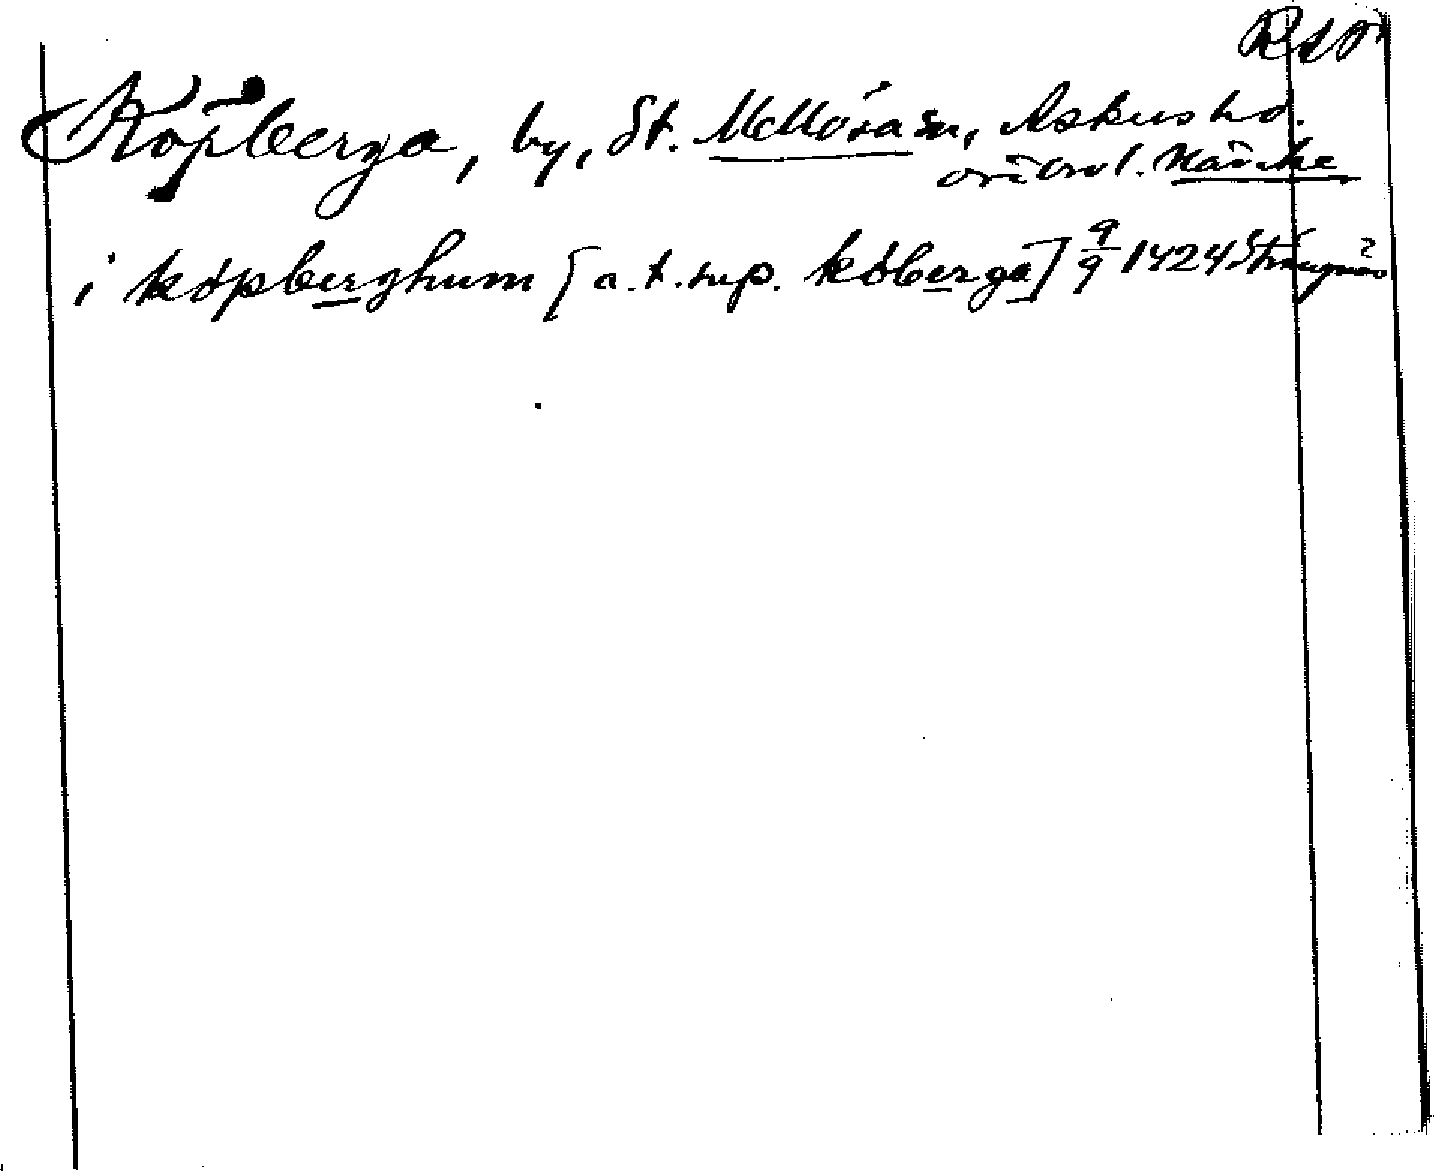 Köpberga, by, St. Mellösa sn, Askers hd.
i köpberghum [a.t. sup. köberga] 9/9 1424 Strängnäs